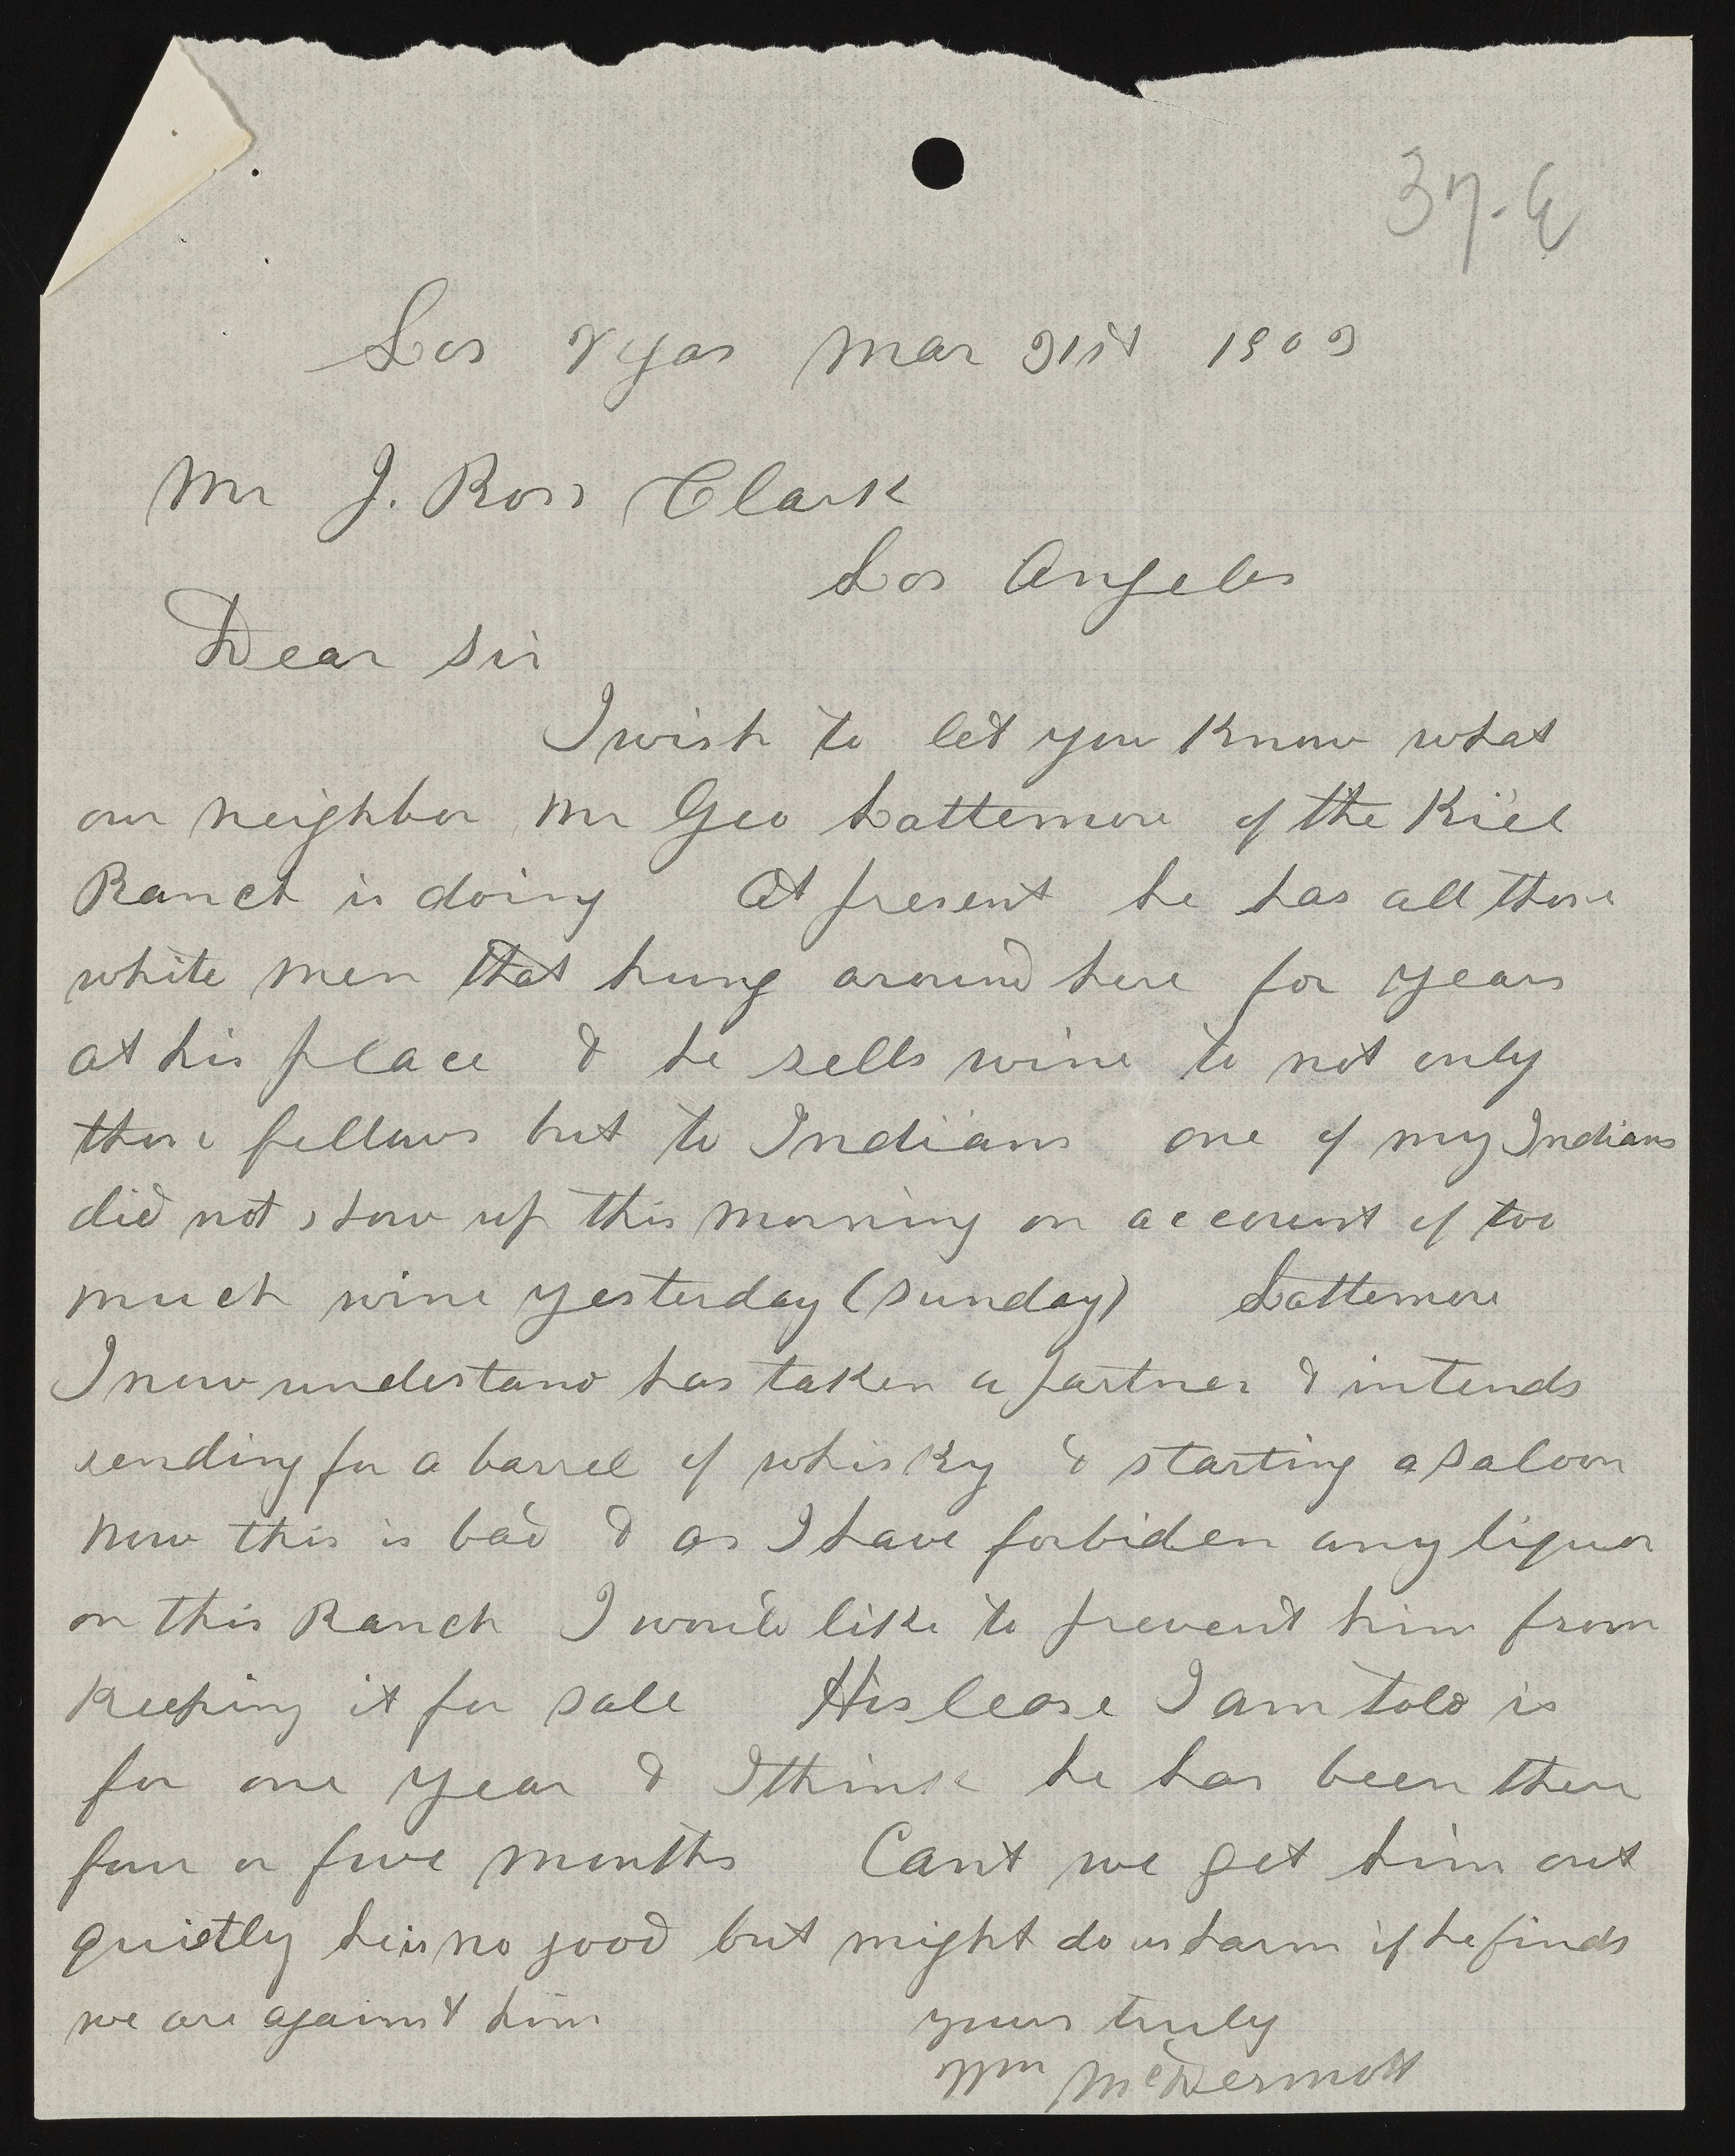 37-E
Los Vgas Mar 31st 1903
Mr J. Ross Clark
Los Angeles
Dear Sir
I wish to let you know what
our neighbor Mr Geo Lattemore of the Kiel
Ranch is doing At present he has all those
white men that hung around here for years
at his place & he sells wine to not only
those fellows but to Indians one of my Indians
did not show up this morning on account of too
much wine yesterday (Sunday) Lattemore
I now understand has taken a partner & intends
sending for a barrel of whisky & starting a saloon
now this is bad & as I have forbiden any liquor
on this Ranch I would like to prevent him from
keeping it for sale His lease I am told is
for one year & I think he has been there
four or five months Cant we get him out
quietly he is no good but might do us harm if he finds
we are against him yours truly
Wm McDermott